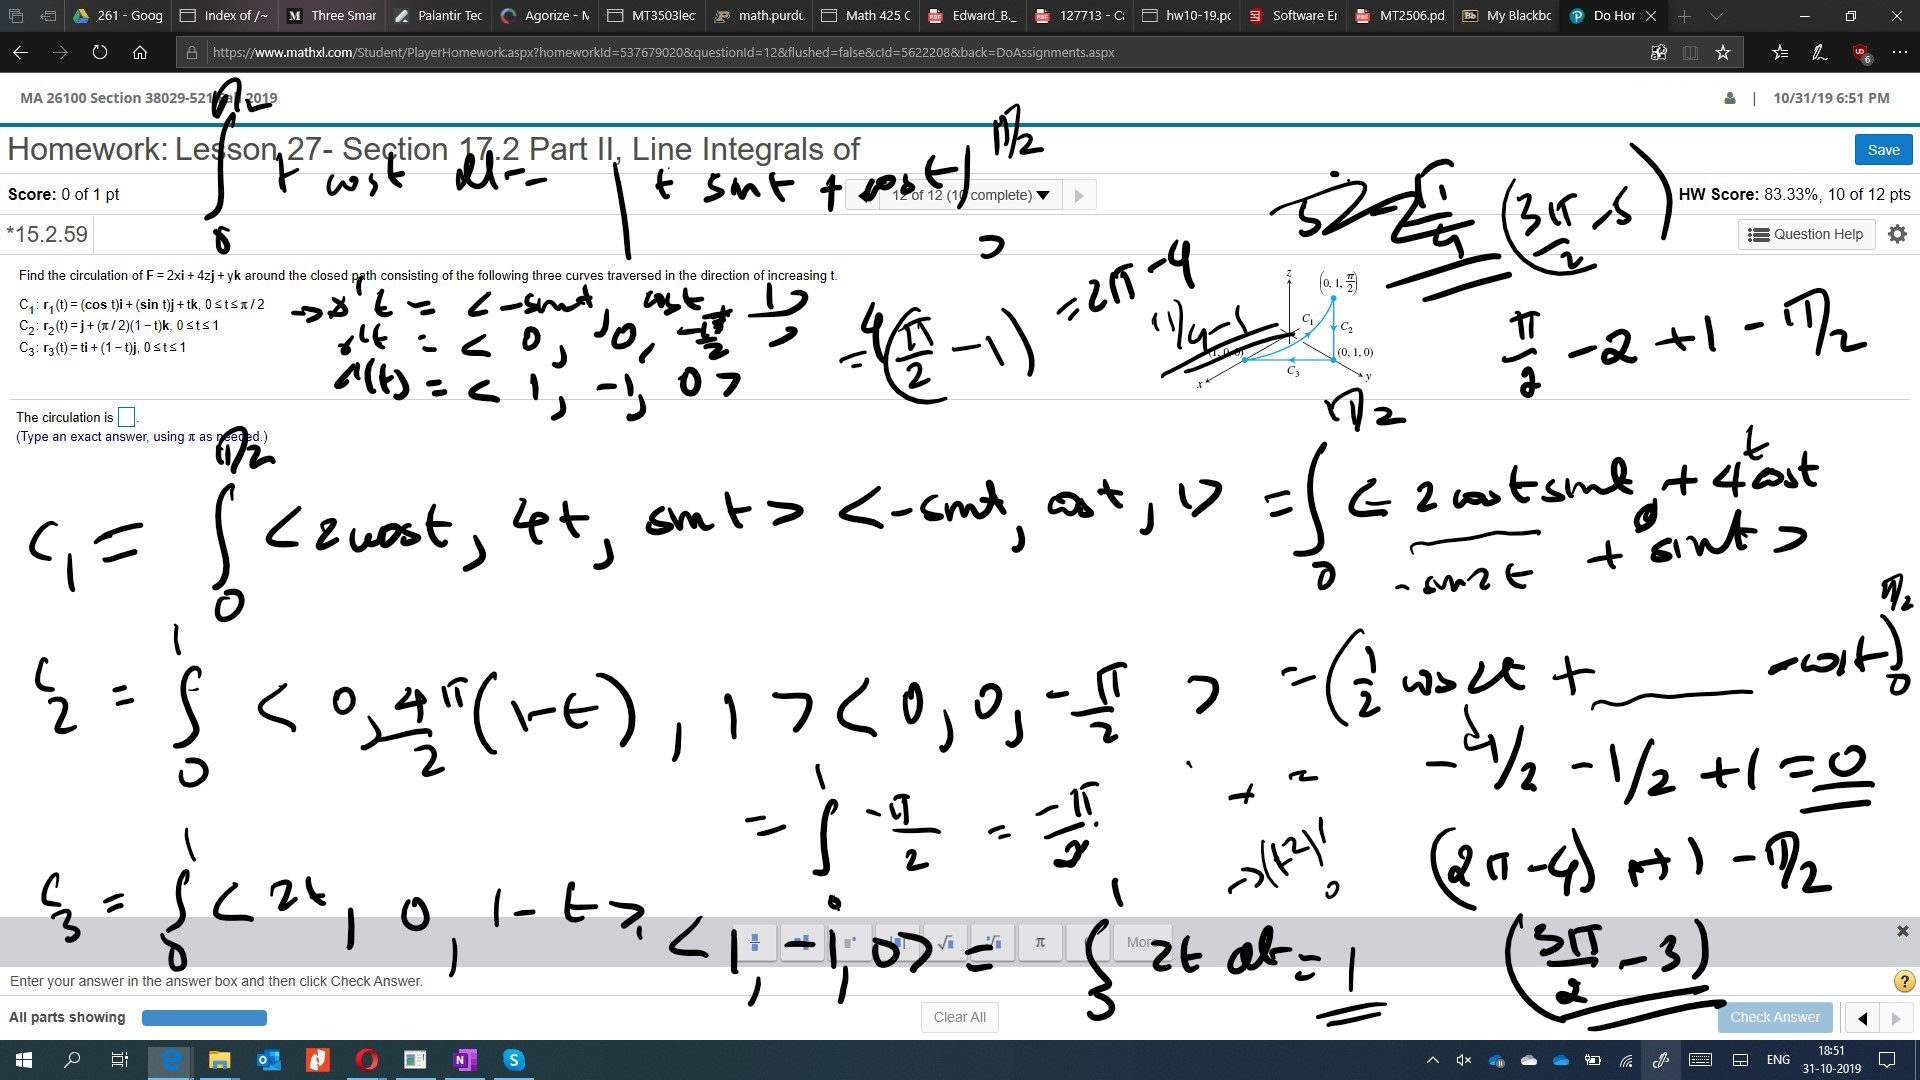 261 - Goog
Index of /~
Three Smar
Palantir Tec
Agorize - M
MT3503lec
math.purdu
Math 425 C
Edward_B._
127713 - Ca
hw10-19.pc
Software Er
MT2506.pd
My Blackbc
Do Hor
https://www.mathxl.com/Student/PlayerHomework.aspx?homeworkId=537679020&questionId=12&flushed=false&cId=5622208&back=DoAssignments.aspx
MA 26100 Section 38029-521 2019
10/31/19 6:51 PM
Homework: Lesson 27- Section 17.2 Part II, Line Integrals of
Save
Score: 0 of 1 pt
12 of 12 (10 complete)
HW Score: 83.33%, 10 of 12 pts
*15.2.59
Question Help
∫₀^π/2 t cost dt = | t sint + cost |₀^π/2
(3π/2 - 3)
Find the circulation of F = 2xi + 4zj + yk around the closed path consisting of the following three curves traversed in the direction of increasing t.
C1: r1(t) = (cos t)i + (sin t)j + tk, 0 ≤ t ≤ π / 2
C2: r2(t) = j + (π / 2)(1 − t)k, 0 ≤ t ≤ 1
C3: r3(t) = ti + (1 − t)j, 0 ≤ t ≤ 1
→ r't = < -sint, cost, 1>
r't = < 0, 0, -π/2 >
r'(t) = < 1, -1, 0 >
= 4(π/2 - 1) = 2π - 4
z
(0, 1, π/2)
C1
C2
(0, 1, 0)
C3
x
y
π/2 - 2 + 1 - π/2
The circulation is
(Type an exact answer, using π as needed.)
C1 = ∫₀^π/2 < 2cost, 4t, sint > < -sint, cost, 1> = ∫₀^π/2 < - 2costsint + 4tcost
+ sint >
- sin2t
C2 = ∫₀^1 < 0, 4π/2 (1-t), 1 > < 0, 0, -π/2 >
= (1/2 cos2t + ____ - cost)₀^π/2
- 1/2 - 1/2 + 1 = 0
= ∫₀^1 -π/2 = -π/2
→ (t²)₀^1
(2π - 4) + 1 - π/2
C3 = ∫₀^1 < 2t, 0, 1-t > < 1, -1, 0> = ∫ 2t dt = 1
(3π/2 - 3)
More
Enter your answer in the answer box and then click Check Answer.
?
All parts showing
Clear All
Check Answer
ENG
18:51
31-10-2019